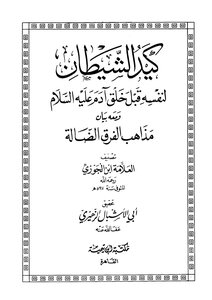 كيد الشيطان
لنفسه قبل خلق آدم عليه السلام
ومعه بيان
مذاهب الفرق الضالة
تصنيف
العلامة ابن الجوزي
رحمه الله
المتوفى سنة ٥٩٧ هـ
تحقيق
أبي الأشبال الزهيري
عفا الله عنه
مكتبة ابن تيمية
القاهرة